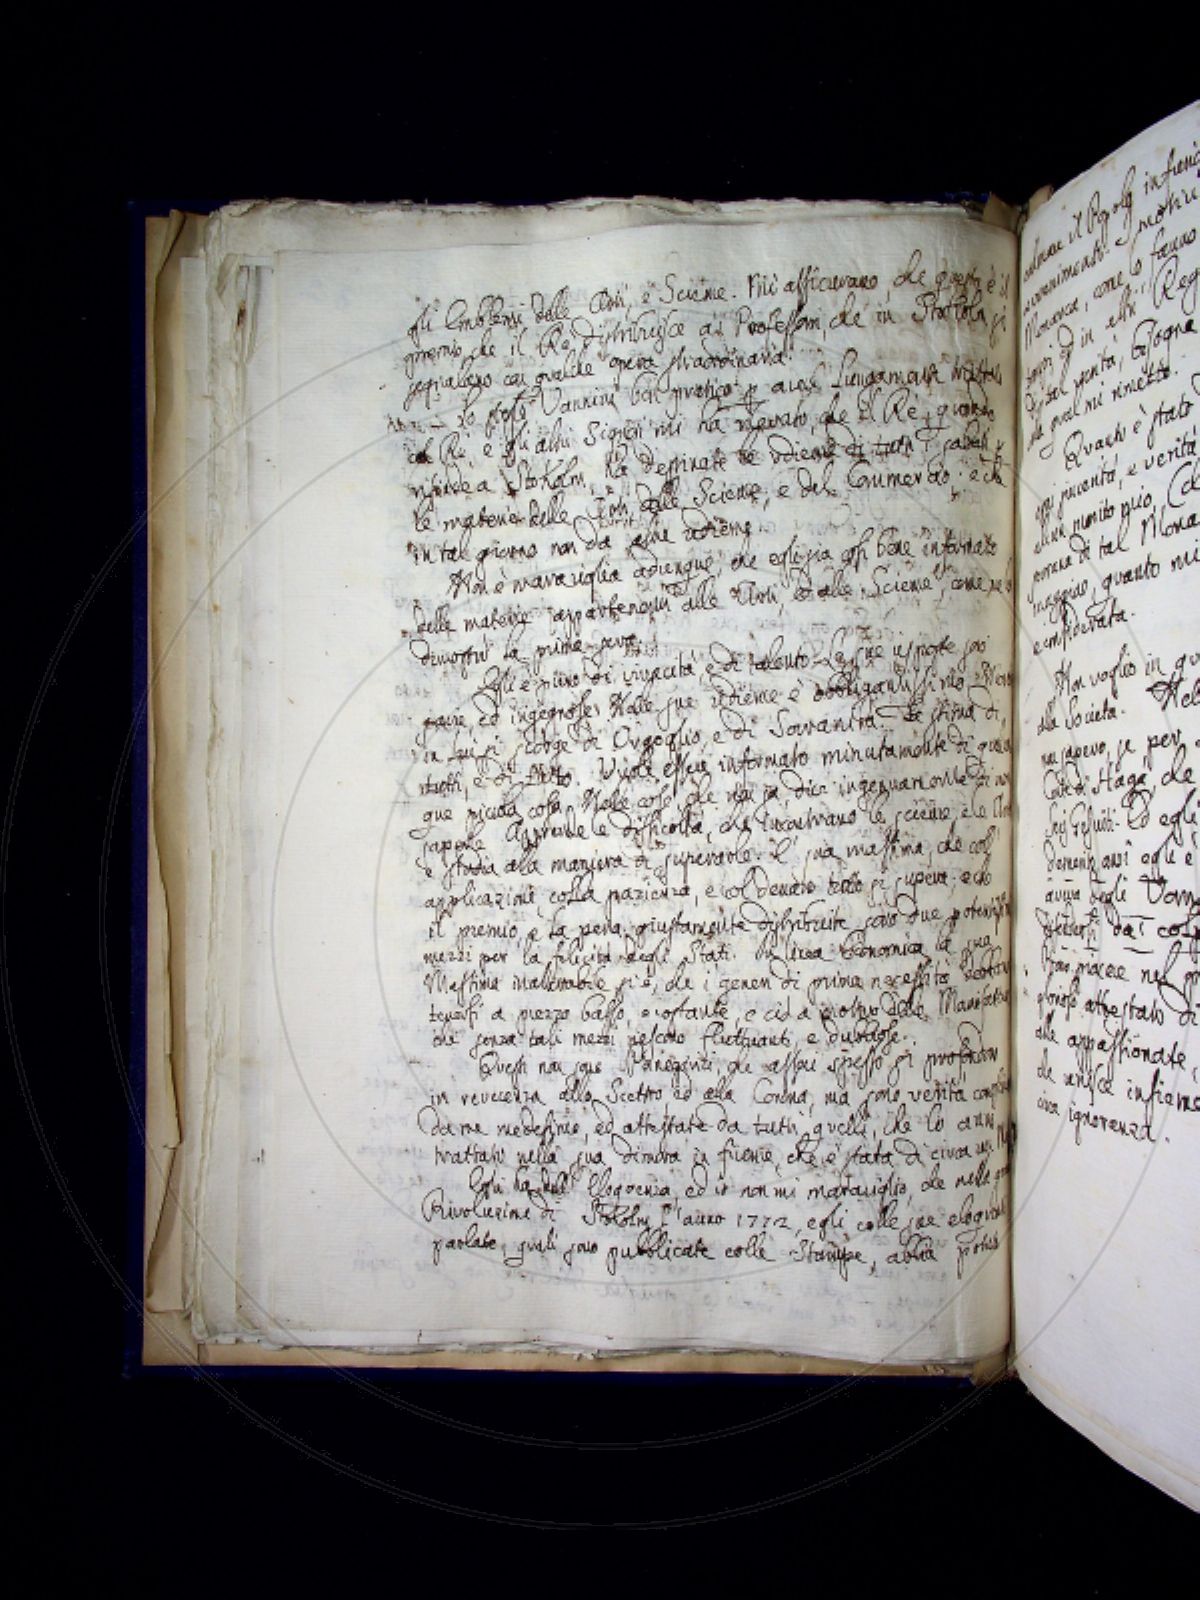 gli Emblemi delle Arti, e Scienze. Mi assicurano, che questo è il
premio, che il Re distribuisce ai Professori, che in Stokolm si
segnalano con qualche opera straordinaria.
Lo stesso Vannini ben pratico p aver lungamente trattato
col Re, e gli altri Signori mi ha narrato, che il Rè, quando
risiede a Stokolm, ha destinate le udienze di tutti i sabati p
le materie delle Arti, delle Scienze, e del Commercio: e che
in tal giorno non dà altre udienze.
Non è maraviglia adunque, che egli sia così bene informato
delle materie appartenenti alle Arti, ed alle Scienze, come ne
dimostrò la prima sera.
Egli è pieno di vivacità, e di talento. Le sue risposte sono
ed ingegnose. Nelle sue udienze è obbligantissimo.
in lui si scorge di Orgoglio, e di Sovranità. Fa stima di
tutti, e di tutto. Vuole essere informato minutamente di
que picciola cosa. Nelle cose, che non sa, dice ingenuamente di non
saperle. Apprende le difficoltà, che incontrano le scienze, e le Arti
e studia alla maniera di superarle. E' sua massima, che coll'
applicazione, colla pazienza, e col denaro tutto si supera; e che
il premio, e la pena giustamente distribuite sono due potentissimi
mezzi per la felicità degli Stati. In linea economica la sua
Massima inalterabile si è, che i generi di prima necessità debbano
tenersi a prezzo basso, e costante, e ciò a motivo delle Manifatture
che senza tali mezzi riescono fluttuanti, e dubbiose.
Questi non sono Panegirici, che assai spesso si profondono
in reverenza allo Scettro ed alla Corona, ma sono verità conosciute
da me medesimo, ed attestate da tutti quelli, che lo anno
trattato nella sua dimora in Firenze, che è stata di circa un
Egli ha dell' Eloquenza, ed io non mi maraviglio, che nella
Rivoluzione di Stokolm l'anno 1772, egli colle sue eloquenti
parlate, quali sono pubblicate colle Stampe, abbia potuto
calmare il Popolo
avvenimento. I motivi
Monarca, come lo fanno
ed in altri
di tal verità, bisogna
al qual mi rimetto.
Quanto è stato
e verità
ad un merito
di tal Monarca
maggio, quanto mi
e considerata.
Non voglio in qu
alla Società. Nel
non sapevo, se per
Conte di Haga, che
Gesuiti. Ed egli
anzi egli è
degli Uomini
attestato di
alle appassionate,
che unisce insieme
ignoranza.